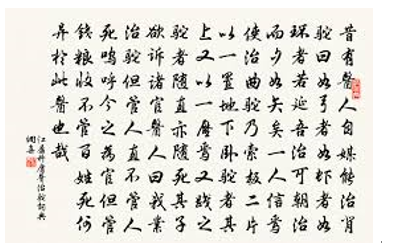 昔有醫人自媒能治背
駝曰如弓者如虾者如
環者若延吾治可朝治
而夕如矢矣一人信焉
使治曲駝乃索板二片
以一置地下卧駝者其
上又以一壓焉又踐之
駝者随直亦随死其子
欲訴諸官醫人曰我業
治駝但管人直不管人
死嗚呼今之為官但管
錢粮收不管百姓死何
异於此醫也哉
江盈科庸醫治駝